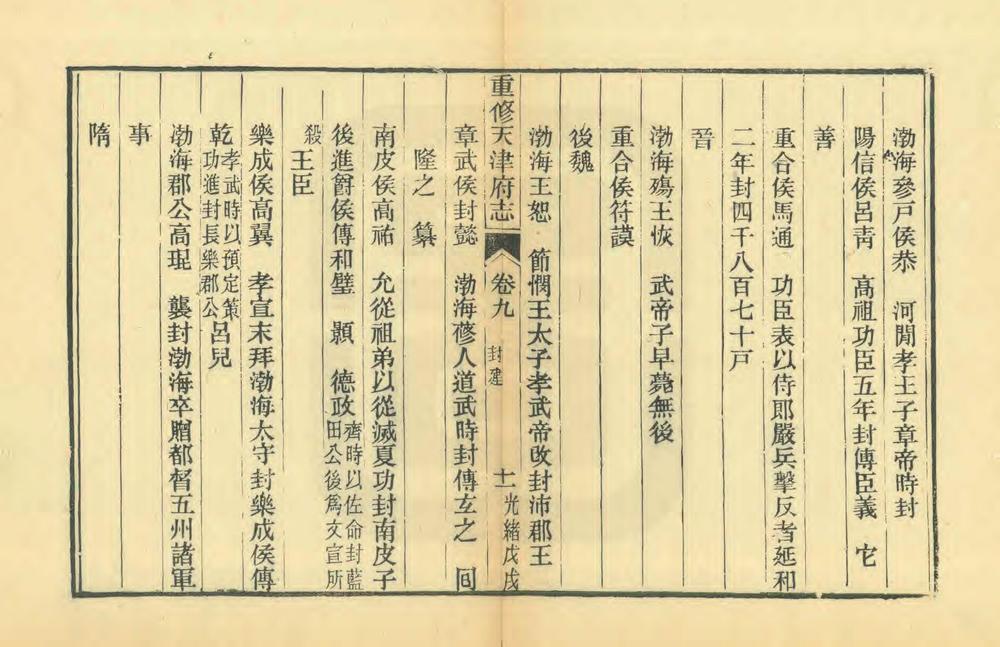 渤海參戸侯恭　河閒孝王子章帝時封
陽信侯呂靑　高祖功臣五年封傳臣義　它
善
重合侯馬通　功臣表以侍郎嚴兵擊反者延和
二年封四千八百七十戸
晉
渤海殤王恢　武帝子早薨無後
重合侯符謨
後魏
渤海王恕　節憫王太子孝武帝改封沛郡王
重修天津府志　卷九　封建　十一　光緒戊戌
章武侯封懿　渤海蓚人道武時封傳玄之　回
隆之　纂
南皮侯高祐　允從祖弟以從滅夏功封南皮子
後進爵侯傳和璧　顥　德政齊時以佐命封藍田公後爲文宣所
殺王臣
樂成侯高翼　孝宣末拜渤海太守封樂成侯傳
乾孝武時以預定策功進封長樂郡公呂兒
渤海郡公高琨　襲封渤海卒贈都督五州諸軍
事
隋